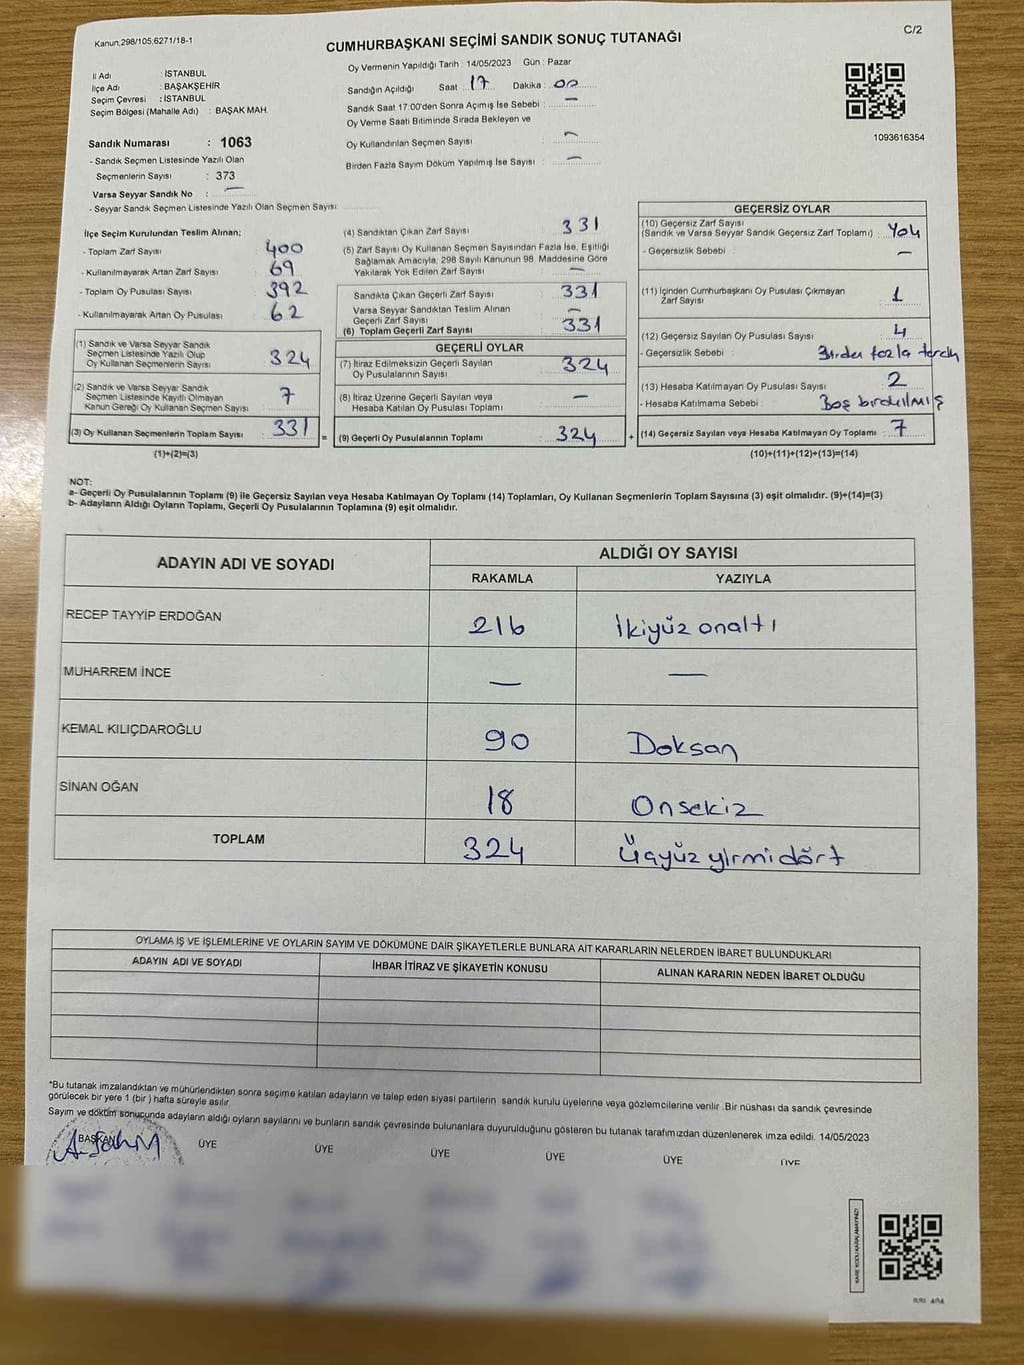 Kanun;298/105;6271/18-1
C/2
CUMHURBAŞKANI SEÇİMİ SANDIK SONUÇ TUTANAĞI
Oy Vermenin Yapıldığı Tarih : 14/05/2023 Gün : Pazar
İl Adı : İSTANBUL
İlçe Adı : BAŞAKŞEHİR
Seçim Çevresi : İSTANBUL
Seçim Bölgesi (Mahalle Adı) : BAŞAK MAH.
Sandığın Açıldığı Saat : 17 Dakika : 00
Sandık Saat 17:00'den Sonra Açımış İse Sebebi : —
Oy Verme Saati Bitiminde Sırada Bekleyen ve
Oy Kullandırılan Seçmen Sayısı : —
Birden Fazla Sayım Döküm Yapılmış İse Sayısı : —
1093616354
Sandık Numarası : 1063
- Sandık Seçmen Listesinde Yazılı Olan
Seçmenlerin Sayısı : 373
Varsa Seyyar Sandık No : —
- Seyyar Sandık Seçmen Listesinde Yazılı Olan Seçmen Sayısı
İlçe Seçim Kurulundan Teslim Alınan;
- Toplam Zarf Sayısı : 400
- Kullanılmayarak Artan Zarf Sayısı : 69
- Toplam Oy Pusulası Sayısı : 392
- Kullanılmayarak Artan Oy Pusulası : 62
(1) Sandık ve Varsa Seyyar Sandık
Seçmen Listesinde Yazılı Olup
Oy Kullanan Seçmenlerin Sayısı : 324
(2) Sandık ve Varsa Seyyar Sandık
Seçmen Listesinde Kayıtlı Olmayan
Kanun Gereği Oy Kullanan Seçmen Sayısı : 7
(3) Oy Kullanan Seçmenlerin Toplam Sayısı : 331
(1)+(2)=(3)
(4) Sandıktan Çıkan Zarf Sayısı : 331
(5) Zarf Sayısı Oy Kullanan Seçmen Sayısından Fazla İse, Eşitliği
Sağlamak Amacıyla, 298 Sayılı Kanunun 98. Maddesine Göre
Yakılarak Yok Edilen Zarf Sayısı : —
Sandıkta Çıkan Geçerli Zarf Sayısı : 331
Varsa Seyyar Sandıktan Teslim Alınan
Geçerli Zarf Sayısı : —
(6) Toplam Geçerli Zarf Sayısı : 331
GEÇERLİ OYLAR
(7) İtiraz Edilmeksizin Geçerli Sayılan
Oy Pusulalarının Sayısı : 324
(8) İtiraz Üzerine Geçerli Sayılan veya
Hesaba Katılan Oy Pusulası Toplamı : —
= (9) Geçerli Oy Pusulalarının Toplamı : 324 +
GEÇERSİZ OYLAR
(10) Geçersiz Zarf Sayısı
(Sandık ve Varsa Seyyar Sandık Geçersiz Zarf Toplamı) : Yok
- Geçersizlik Sebebi : —
(11) İçinden Cumhurbaşkanı Oy Pusulası Çıkmayan
Zarf Sayısı : 1
(12) Geçersiz Sayılan Oy Pusulası Sayısı : 4
- Geçersizlik Sebebi : Birden fazla tercih
(13) Hesaba Katılmayan Oy Pusulası Sayısı : 2
- Hesaba Katılmama Sebebi : Boş bırakılmış
(14) Geçersiz Sayılan veya Hesaba Katılmayan Oy Toplamı : 7
(10)+(11)+(12)+(13)=(14)
NOT:
a- Geçerli Oy Pusulalarının Toplamı (9) ile Geçersiz Sayılan veya Hesaba Katılmayan Oy Toplamı (14) Toplamları, Oy Kullanan Seçmenlerin Toplam Sayısına (3) eşit olmalıdır. (9)+(14)=(3)
b- Adayların Aldığı Oyların Toplamı, Geçerli Oy Pusulalarının Toplamına (9) eşit olmalıdır.
ADAYIN ADI VE SOYADI
ALDIĞI OY SAYISI
RAKAMLA YAZIYLA
RECEP TAYYİP ERDOĞAN 216 İkiyüz onaltı
MUHARREM İNCE — —
KEMAL KILIÇDAROĞLU 90 Doksan
SİNAN OĞAN 18 Onsekiz
TOPLAM 324 Üçyüz yirmidört
OYLAMA İŞ VE İŞLEMLERİNE VE OYLARIN SAYIM VE DÖKÜMÜNE DAİR ŞİKAYETLERLE BUNLARA AİT KARARLARIN NELERDEN İBARET BULUNDUKLARI
ADAYIN ADI VE SOYADI İHBAR İTİRAZ VE ŞİKAYETİN KONUSU ALINAN KARARIN NEDEN İBARET OLDUĞU
*Bu tutanak imzalandıktan ve mühürlendikten sonra seçime katılan adayların ve talep eden siyasi partilerin sandık kurulu üyelerine veya gözlemcilerine verilir .Bir nüshası da sandık çevresinde
görülecek bir yere 1 (bir ) hafta süreyle asılır.
Sayım ve döküm sonucunda adayların aldığı oyların sayılarını ve bunların sandık çevresinde bulunanlara duyurulduğunu gösteren bu tutanak tarafımızdan düzenlenerek imza edildi. 14/05/2023
BAŞKAN ÜYE ÜYE ÜYE ÜYE ÜYE ÜYE
KARE KODU KARALAMAYINIZ!